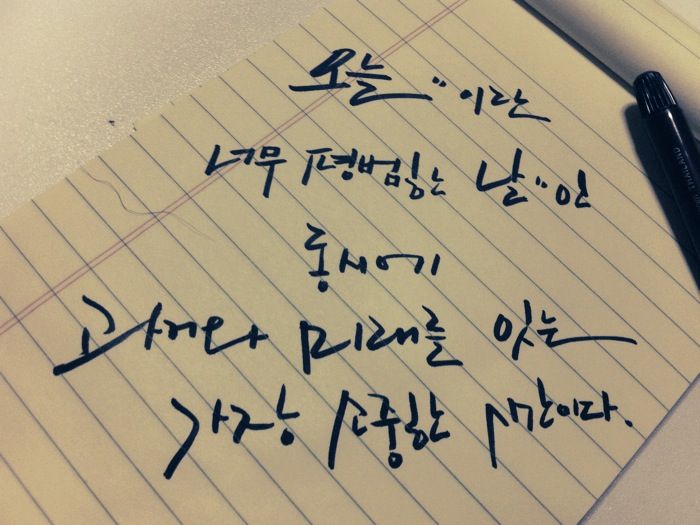 오늘"이란
너무 평범한 날"인
동시에
과거와 미래를 잇는
가장 소중한 시간이다.
THAILAND